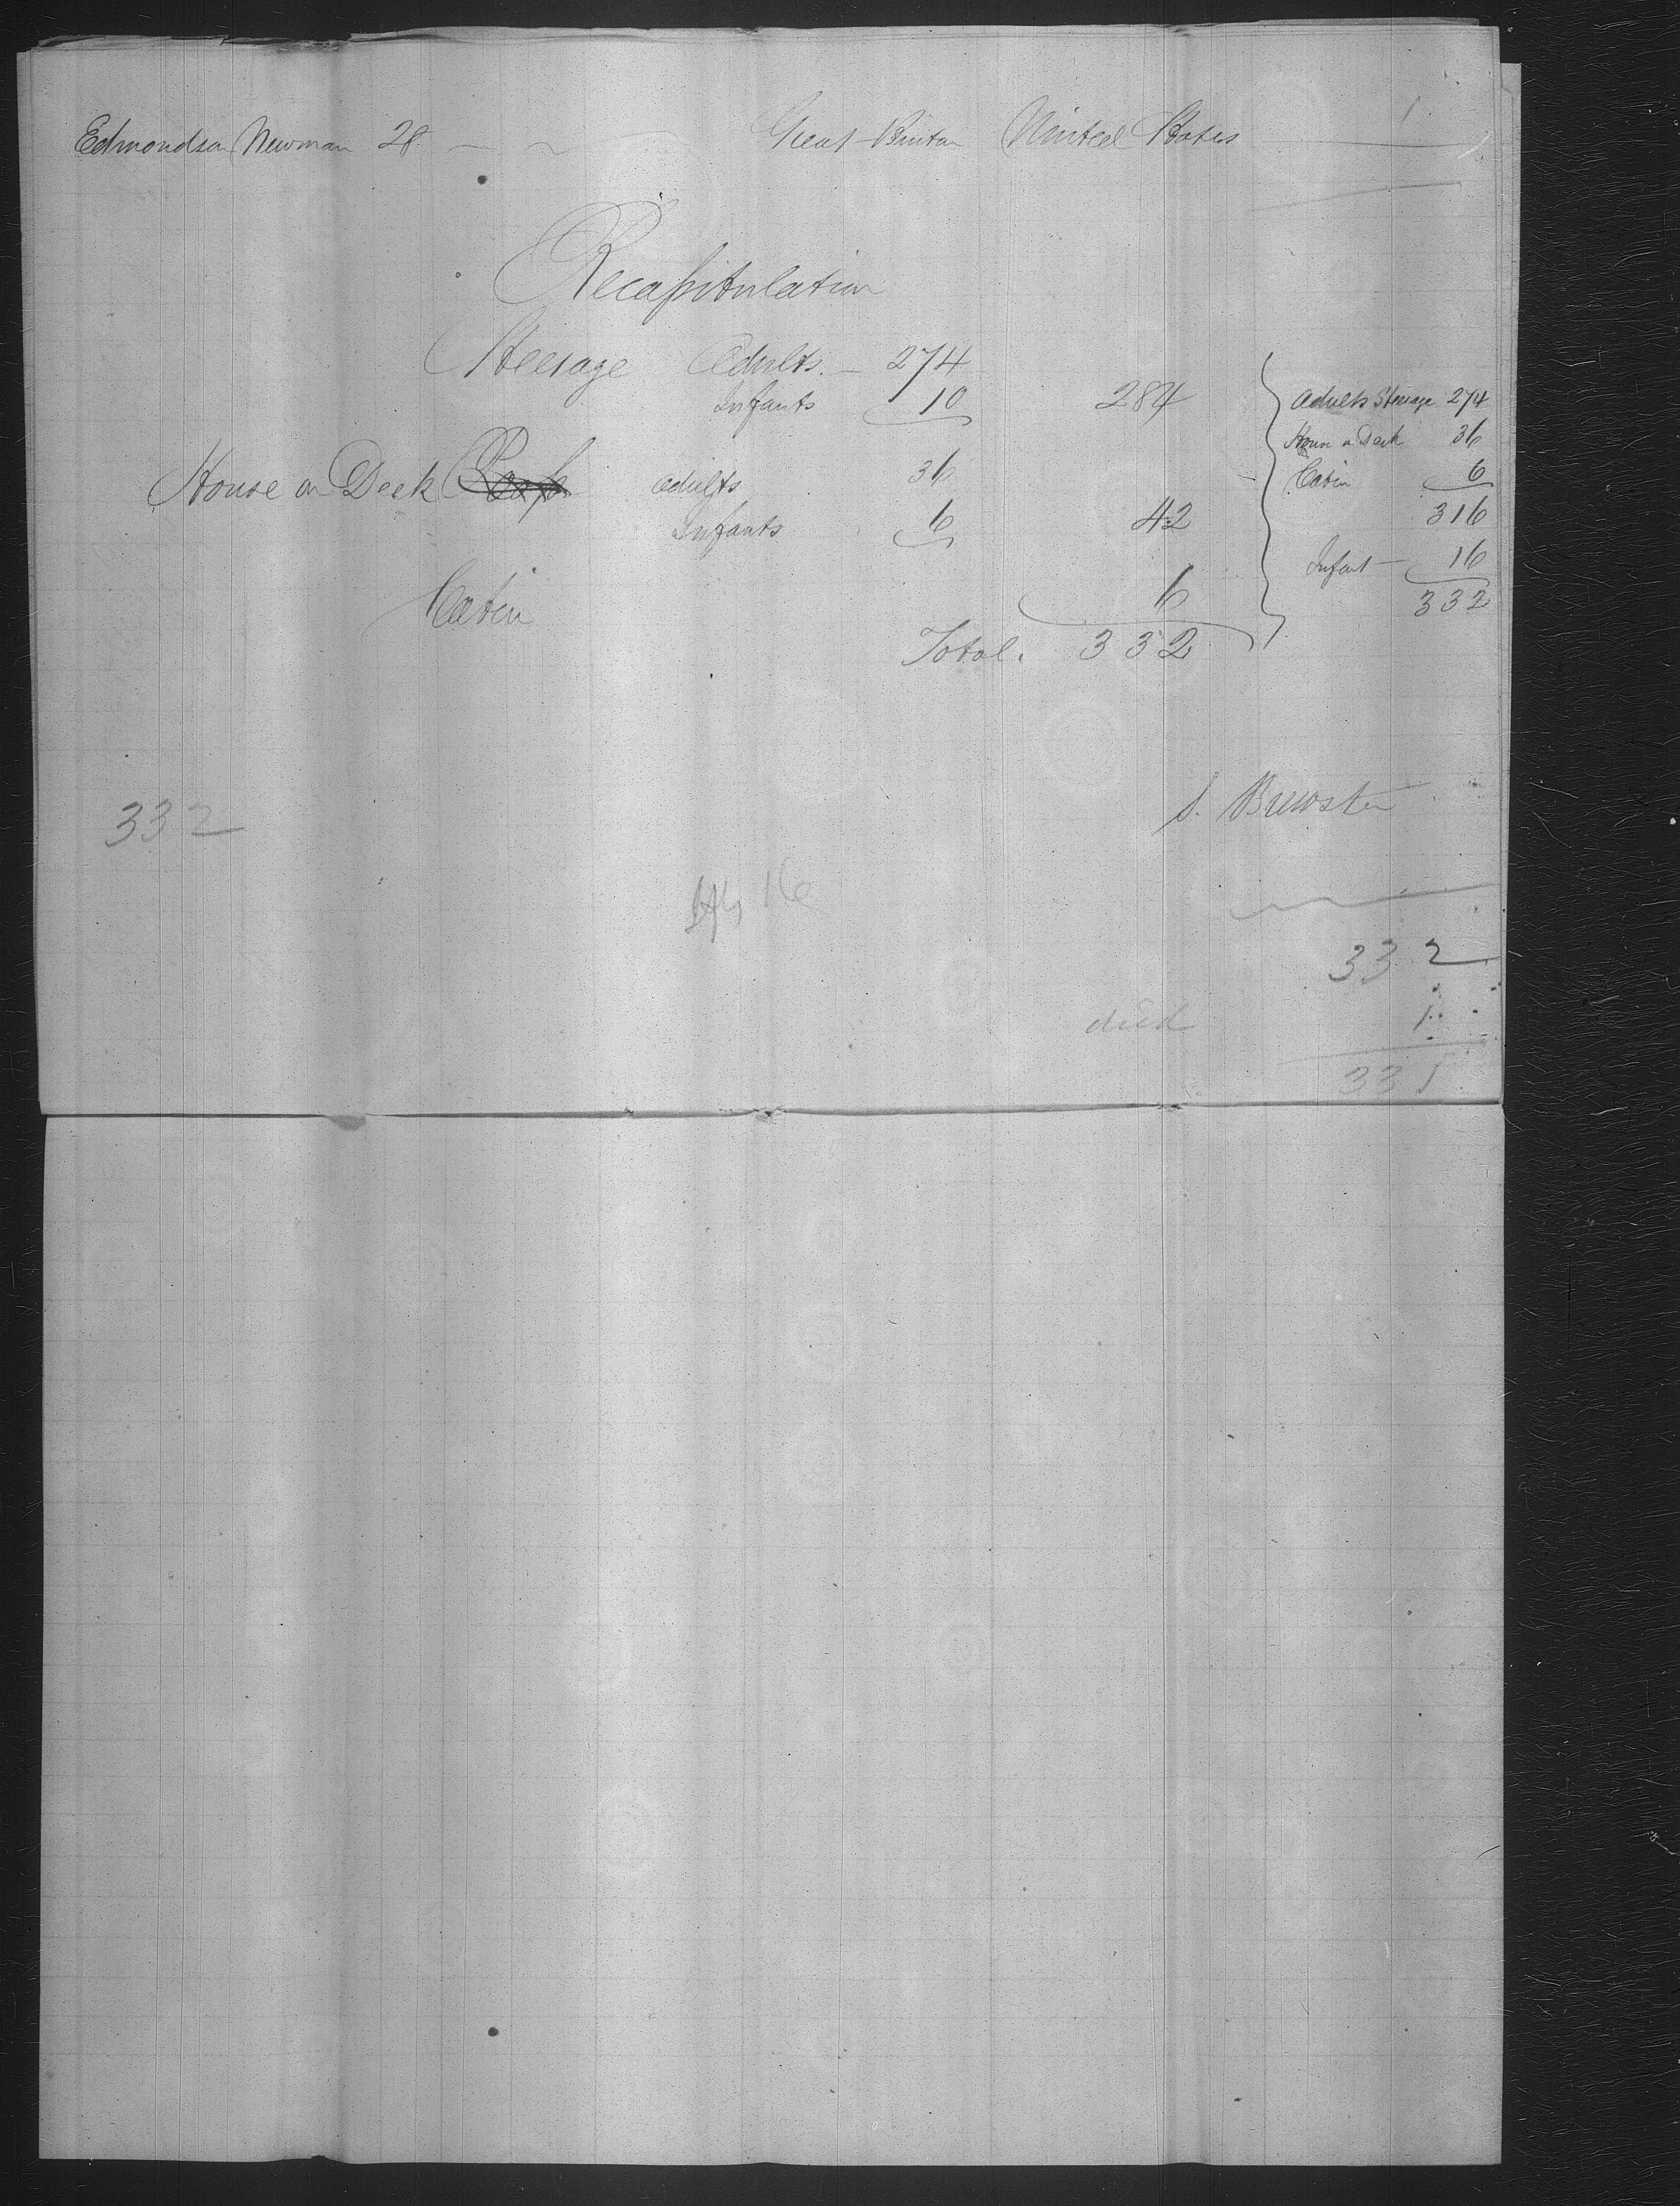 Edmondson Newman 28 Great Britan United States 1
Recapitulation
Steerage Adults. — 274
Infants 10 284
House on Deck Adults 36
Infants 6 42
Cabin 6
Total. 332
Adults Sterage 274
House on Deck 36
Cabin 6
316
Infant — 16
332
S. Brewster
332
16
332
died 1
331